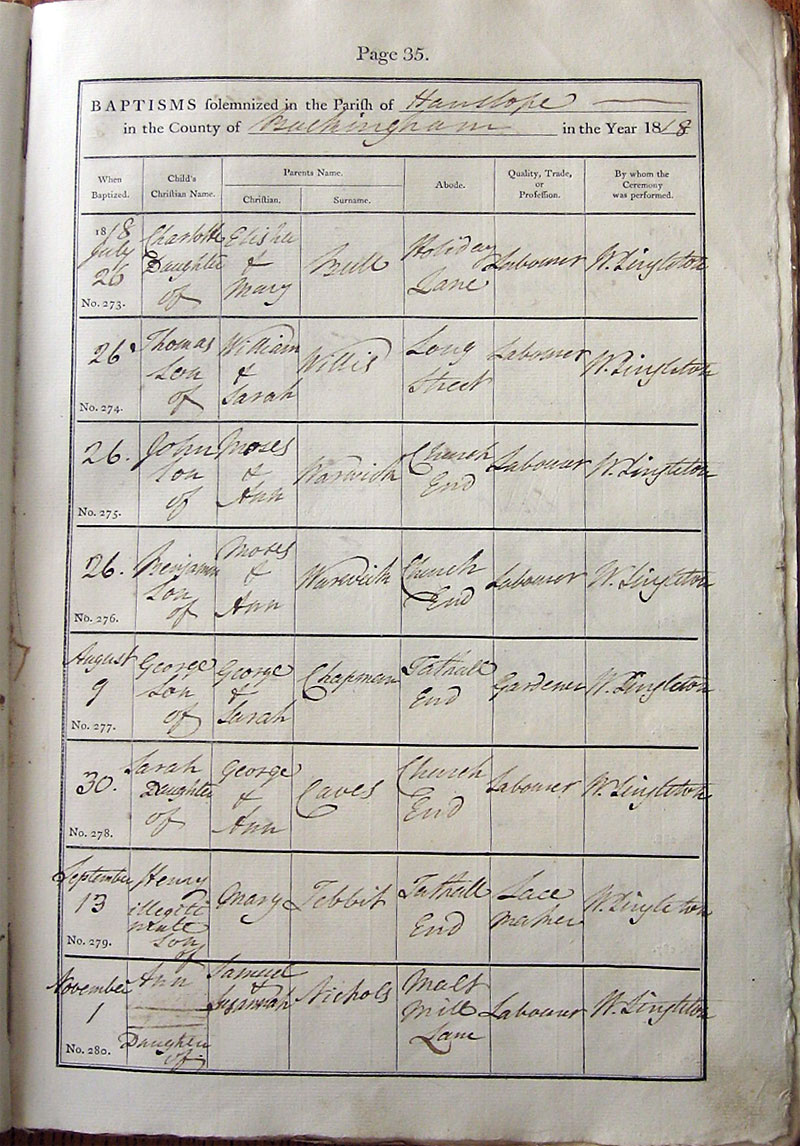 Page 35.
BAPTISMS solemnized in the Parish of Hanslope
in the County of Buckingham in the Year 1818
When Baptized.
Child's Christian Name.
Parents Name.
Christian.
Surname.
Abode.
Quality, Trade, or Profession.
By whom the Ceremony was performed.
1818
July
26
No. 273.
Charlotte
Daughter
of
Elisha
&
Mary
Bull
Holiday
Lane
Labourer
W. Singleton
26
No. 274.
Thomas
Son
of
William
&
Sarah
Willis
Long
Street
Labourer
W. Singleton
26.
No. 275.
John
Son
of
Moses
&
Ann
Warwick
Church
End
Labourer
W. Singleton
26.
No. 276.
Benjamin
Son
of
Moses
&
Ann
Warwick
Church
End
Labourer
W. Singleton
August
9
No. 277.
George
Son
of
George
&
Sarah
Chapman
Tathall
End
Gardener
W. Singleton
30.
No. 278.
Sarah
Daughter
of
George
&
Ann
Caves
Church
End
Labourer
W. Singleton
September
13
No. 279.
Henry
illegiti
mate
Son
of
Mary
Tebbit
Tathall
End
Lace
Maker
W. Singleton
November
1
No. 280.
Ann
Daughter
of
Samuel
&
Susannah
Nichols
Malt
Mill
Lane
Labourer
W. Singleton